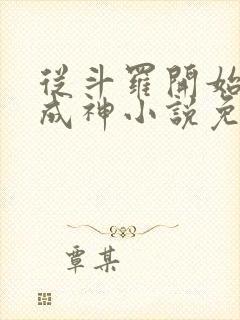 從斗羅開始
成神小說免
覃某